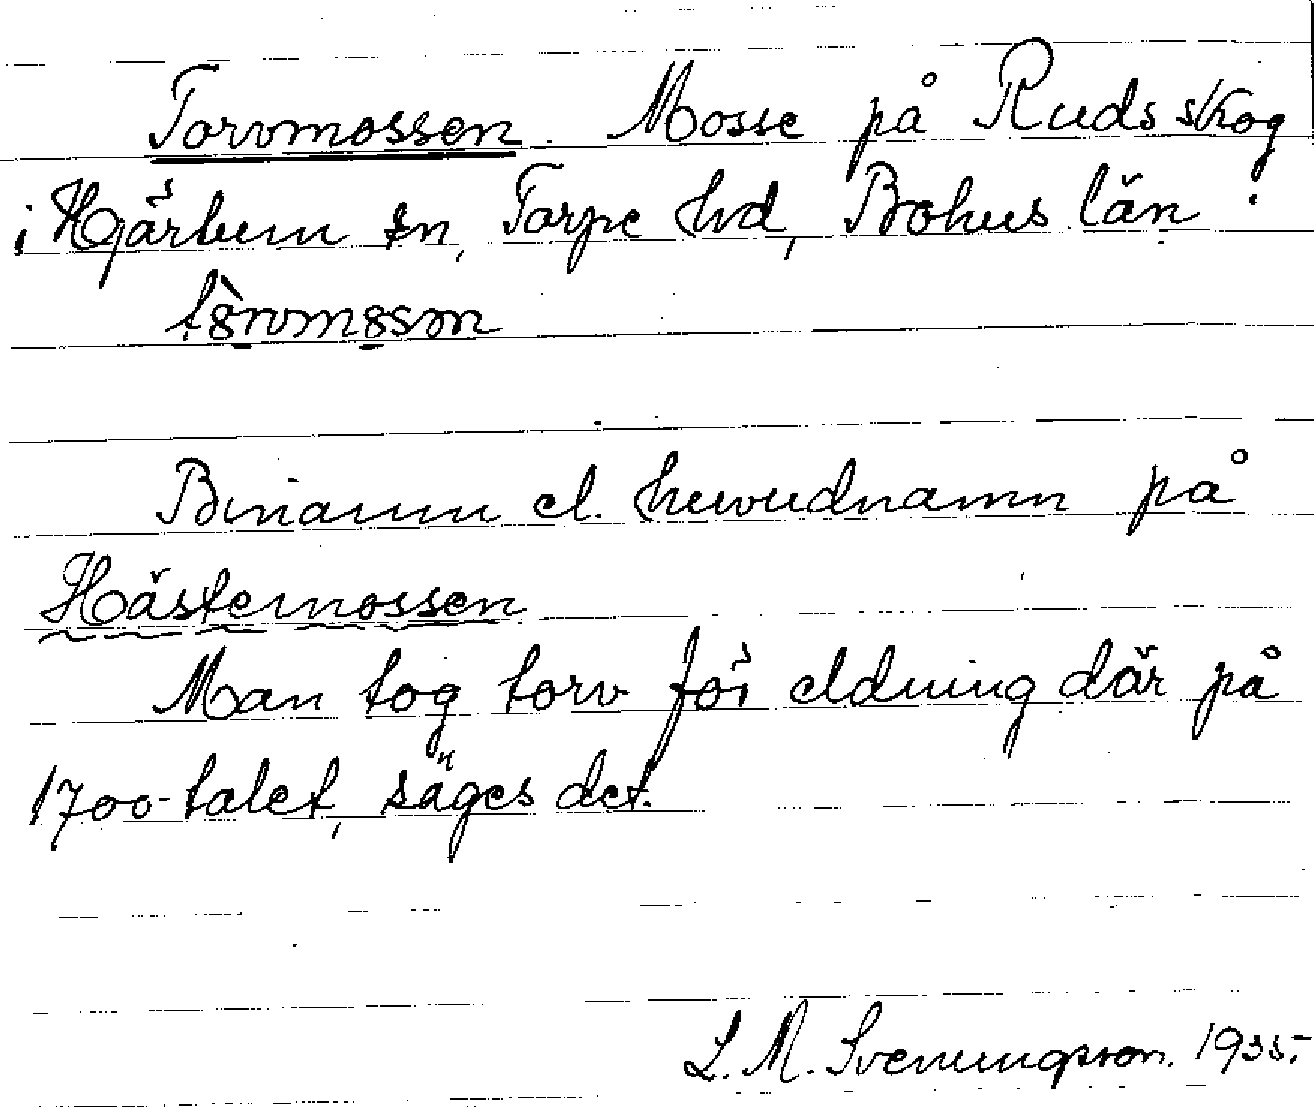 Torvmossen. Mosse på Ruds skog
i Hjärtum sn, Torpe hd, Bohus län.
Binamn el. huvudnamn på
Hästemossen
Man tog torv för eldning där på
1700-talet, säges det.
L. M. Svenungsson. 1935.